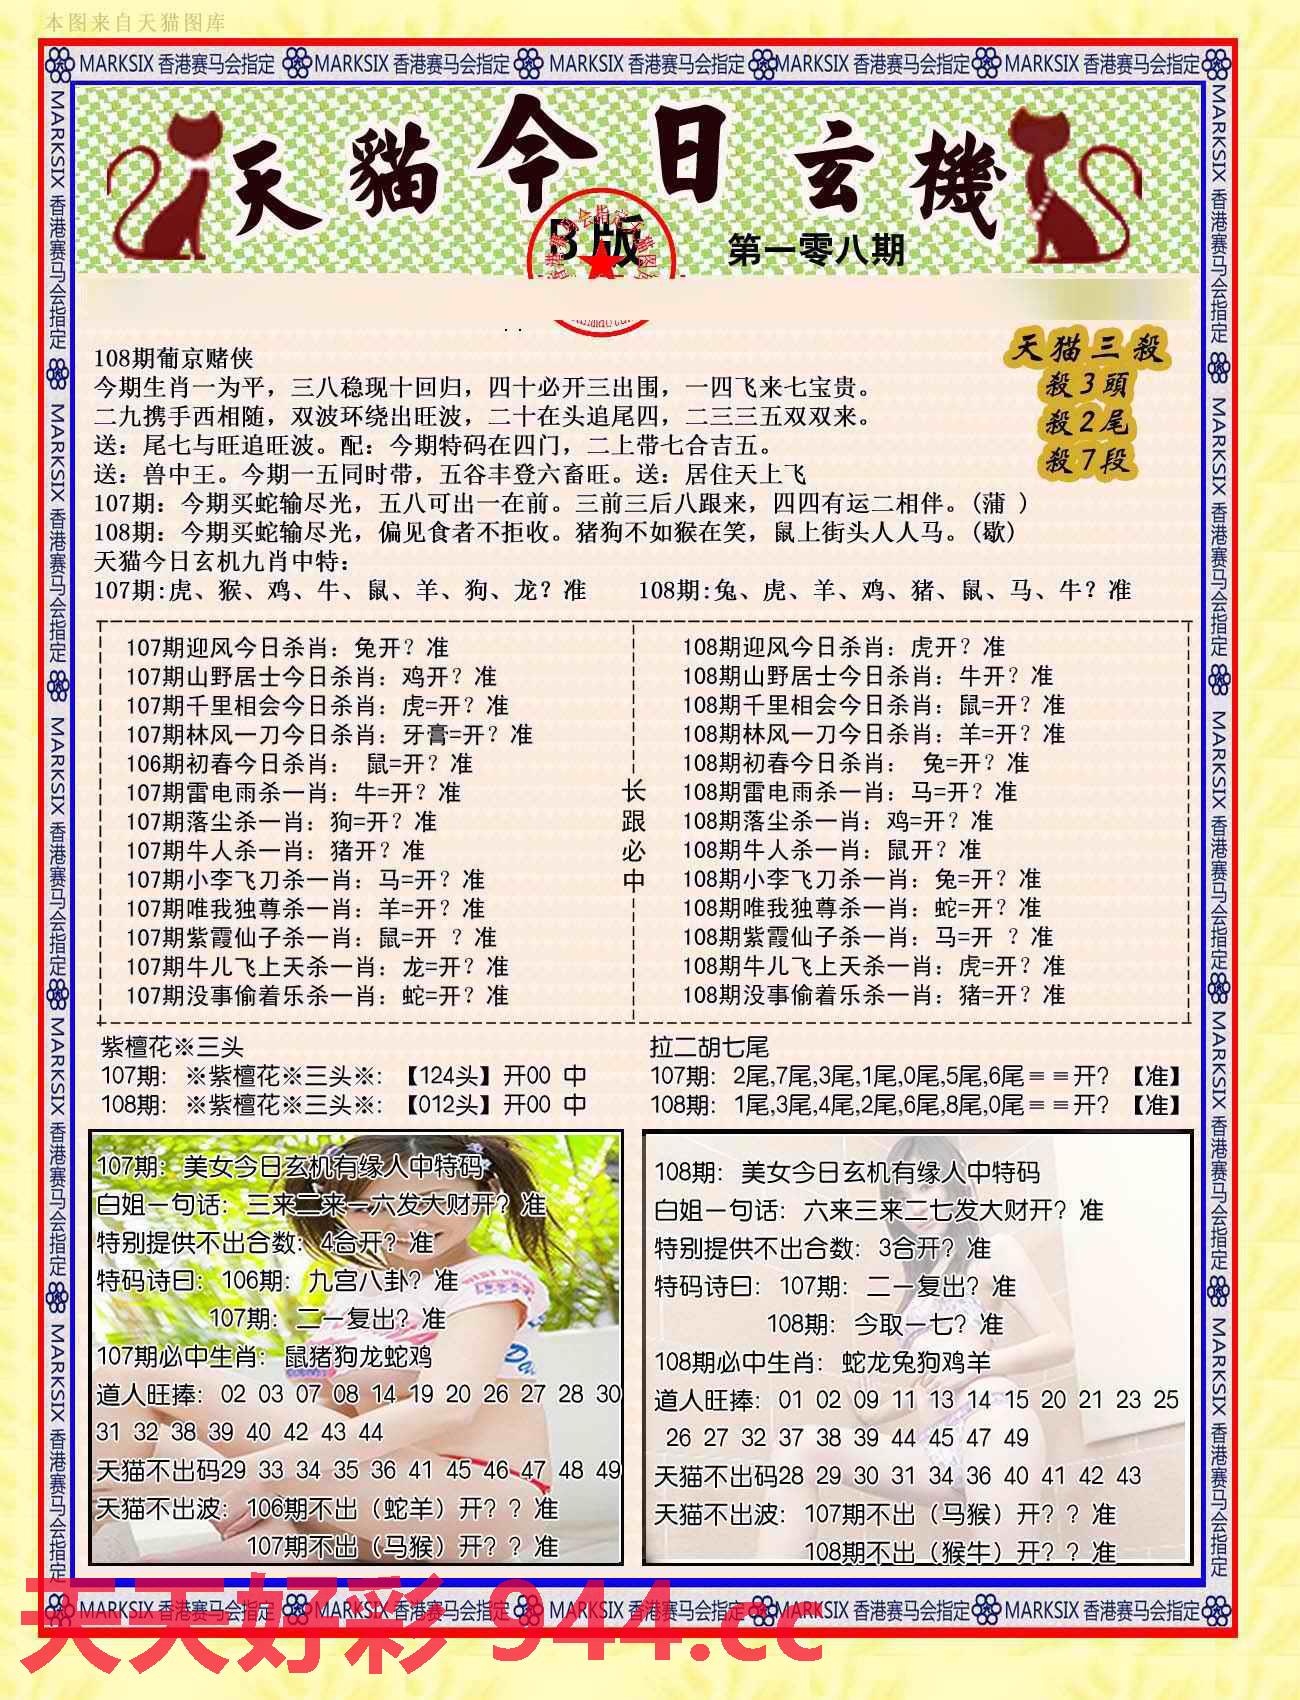 本图来自天猫图库
MARKSIX 香港赛马会指定 MARKSIX 香港赛马会指定 MARKSIX 香港赛马会指定 MARKSIX 香港赛马会指定 MARKSIX 香港赛马会指定
天貓今日玄機
B版
第一零八期
天猫三殺
殺3頭
殺2尾
殺7段
108期葡京赌侠
今期生肖一为平，三八稳现十回归，四十必开三出围，一四飞来七宝贵。
二九携手西相随，双波环绕出旺波，二十在头追尾四，二三三五双双来。
送：尾七与旺追旺波。配：今期特码在四门，二上带七合吉五。
送：兽中王。今期一五同时带，五谷丰登六畜旺。送：居住天上飞
107期：今期买蛇输尽光，五八可出一在前。三前三后八跟来，四四有运二相伴。(蒲 )
108期：今期买蛇输尽光，偏见食者不拒收。猪狗不如猴在笑，鼠上街头人人马。(歇)
天猫今日玄机九肖中特：
107期:虎、猴、鸡、牛、鼠、羊、狗、龙？准 108期:兔、虎、羊、鸡、猪、鼠、马、牛？准
107期迎风今日杀肖：兔开？准
107期山野居士今日杀肖：鸡开？准
107期千里相会今日杀肖：虎=开？准
107期林风一刀今日杀肖：牙膏=开？准
106期初春今日杀肖： 鼠=开？准
107期雷电雨杀一肖：牛=开？准
107期落尘杀一肖：狗=开？准
107期牛人杀一肖：猪开？准
107期小李飞刀杀一肖：马=开？准
107期唯我独尊杀一肖：羊=开？准
107期紫霞仙子杀一肖：鼠=开 ？准
107期牛儿飞上天杀一肖：龙=开？准
107期没事偷着乐杀一肖：蛇=开？准
长跟必中
108期迎风今日杀肖：虎开？准
108期山野居士今日杀肖：牛开？准
108期千里相会今日杀肖：鼠=开？准
108期林风一刀今日杀肖：羊=开？准
108期初春今日杀肖： 兔=开？准
108期雷电雨杀一肖：马=开？准
108期落尘杀一肖：鸡=开？准
108期牛人杀一肖：鼠开？准
108期小李飞刀杀一肖：兔=开？准
108期唯我独尊杀一肖：蛇=开？准
108期紫霞仙子杀一肖：马=开 ？准
108期牛儿飞上天杀一肖：虎=开？准
108期没事偷着乐杀一肖：猪=开？准
紫檀花※三头
107期：※紫檀花※三头※：【124头】开00 中
108期：※紫檀花※三头※：【012头】开00 中
拉二胡七尾
107期：2尾,7尾,3尾,1尾,0尾,5尾,6尾＝＝开？【准】
108期：1尾,3尾,4尾,2尾,6尾,8尾,0尾＝＝开？【准】
107期：美女今日玄机有缘人中特码
白姐一句话：三来二来一六发大财开？准
特别提供不出合数：4合开？准
特码诗曰：106期：九宫八卦？准
107期：二一复出？准
107期必中生肖：鼠猪狗龙蛇鸡
道人旺捧：02 03 07 08 14 19 20 26 27 28 30
31 32 38 39 40 42 43 44
天猫不出码29 33 34 35 36 41 45 46 47 48 49
天猫不出波：106期不出（蛇羊）开？？准
107期不出（马猴）开？？准
108期：美女今日玄机有缘人中特码
白姐一句话：六来三来二七发大财开？准
特别提供不出合数：3合开？准
特码诗曰：107期：二一复出？准
108期：今取一七？准
108期必中生肖：蛇龙兔狗鸡羊
道人旺捧：01 02 09 11 13 14 15 20 21 23 25
26 27 32 37 38 39 44 45 47 49
天猫不出码28 29 30 31 34 36 40 41 42 43
天猫不出波：107期不出（马猴）开？？准
108期不出（猴牛）开？？准
MARKSIX 香港赛马会指定 MARKSIX 香港赛马会指定 MARKSIX 香港赛马会指定 MARKSIX 香港赛马会指定 MARKSIX 香港赛马会指定
MARKSIX 香港赛马会指定 MARKSIX 香港赛马会指定 MARKSIX 香港赛马会指定 MARKSIX 香港赛马会指定 MARKSIX 香港赛马会指定
MARKSIX 香港赛马会指定 MARKSIX 香港赛马会指定 MARKSIX 香港赛马会指定 MARKSIX 香港赛马会指定 MARKSIX 香港赛马会指定
天天好彩 944.cc